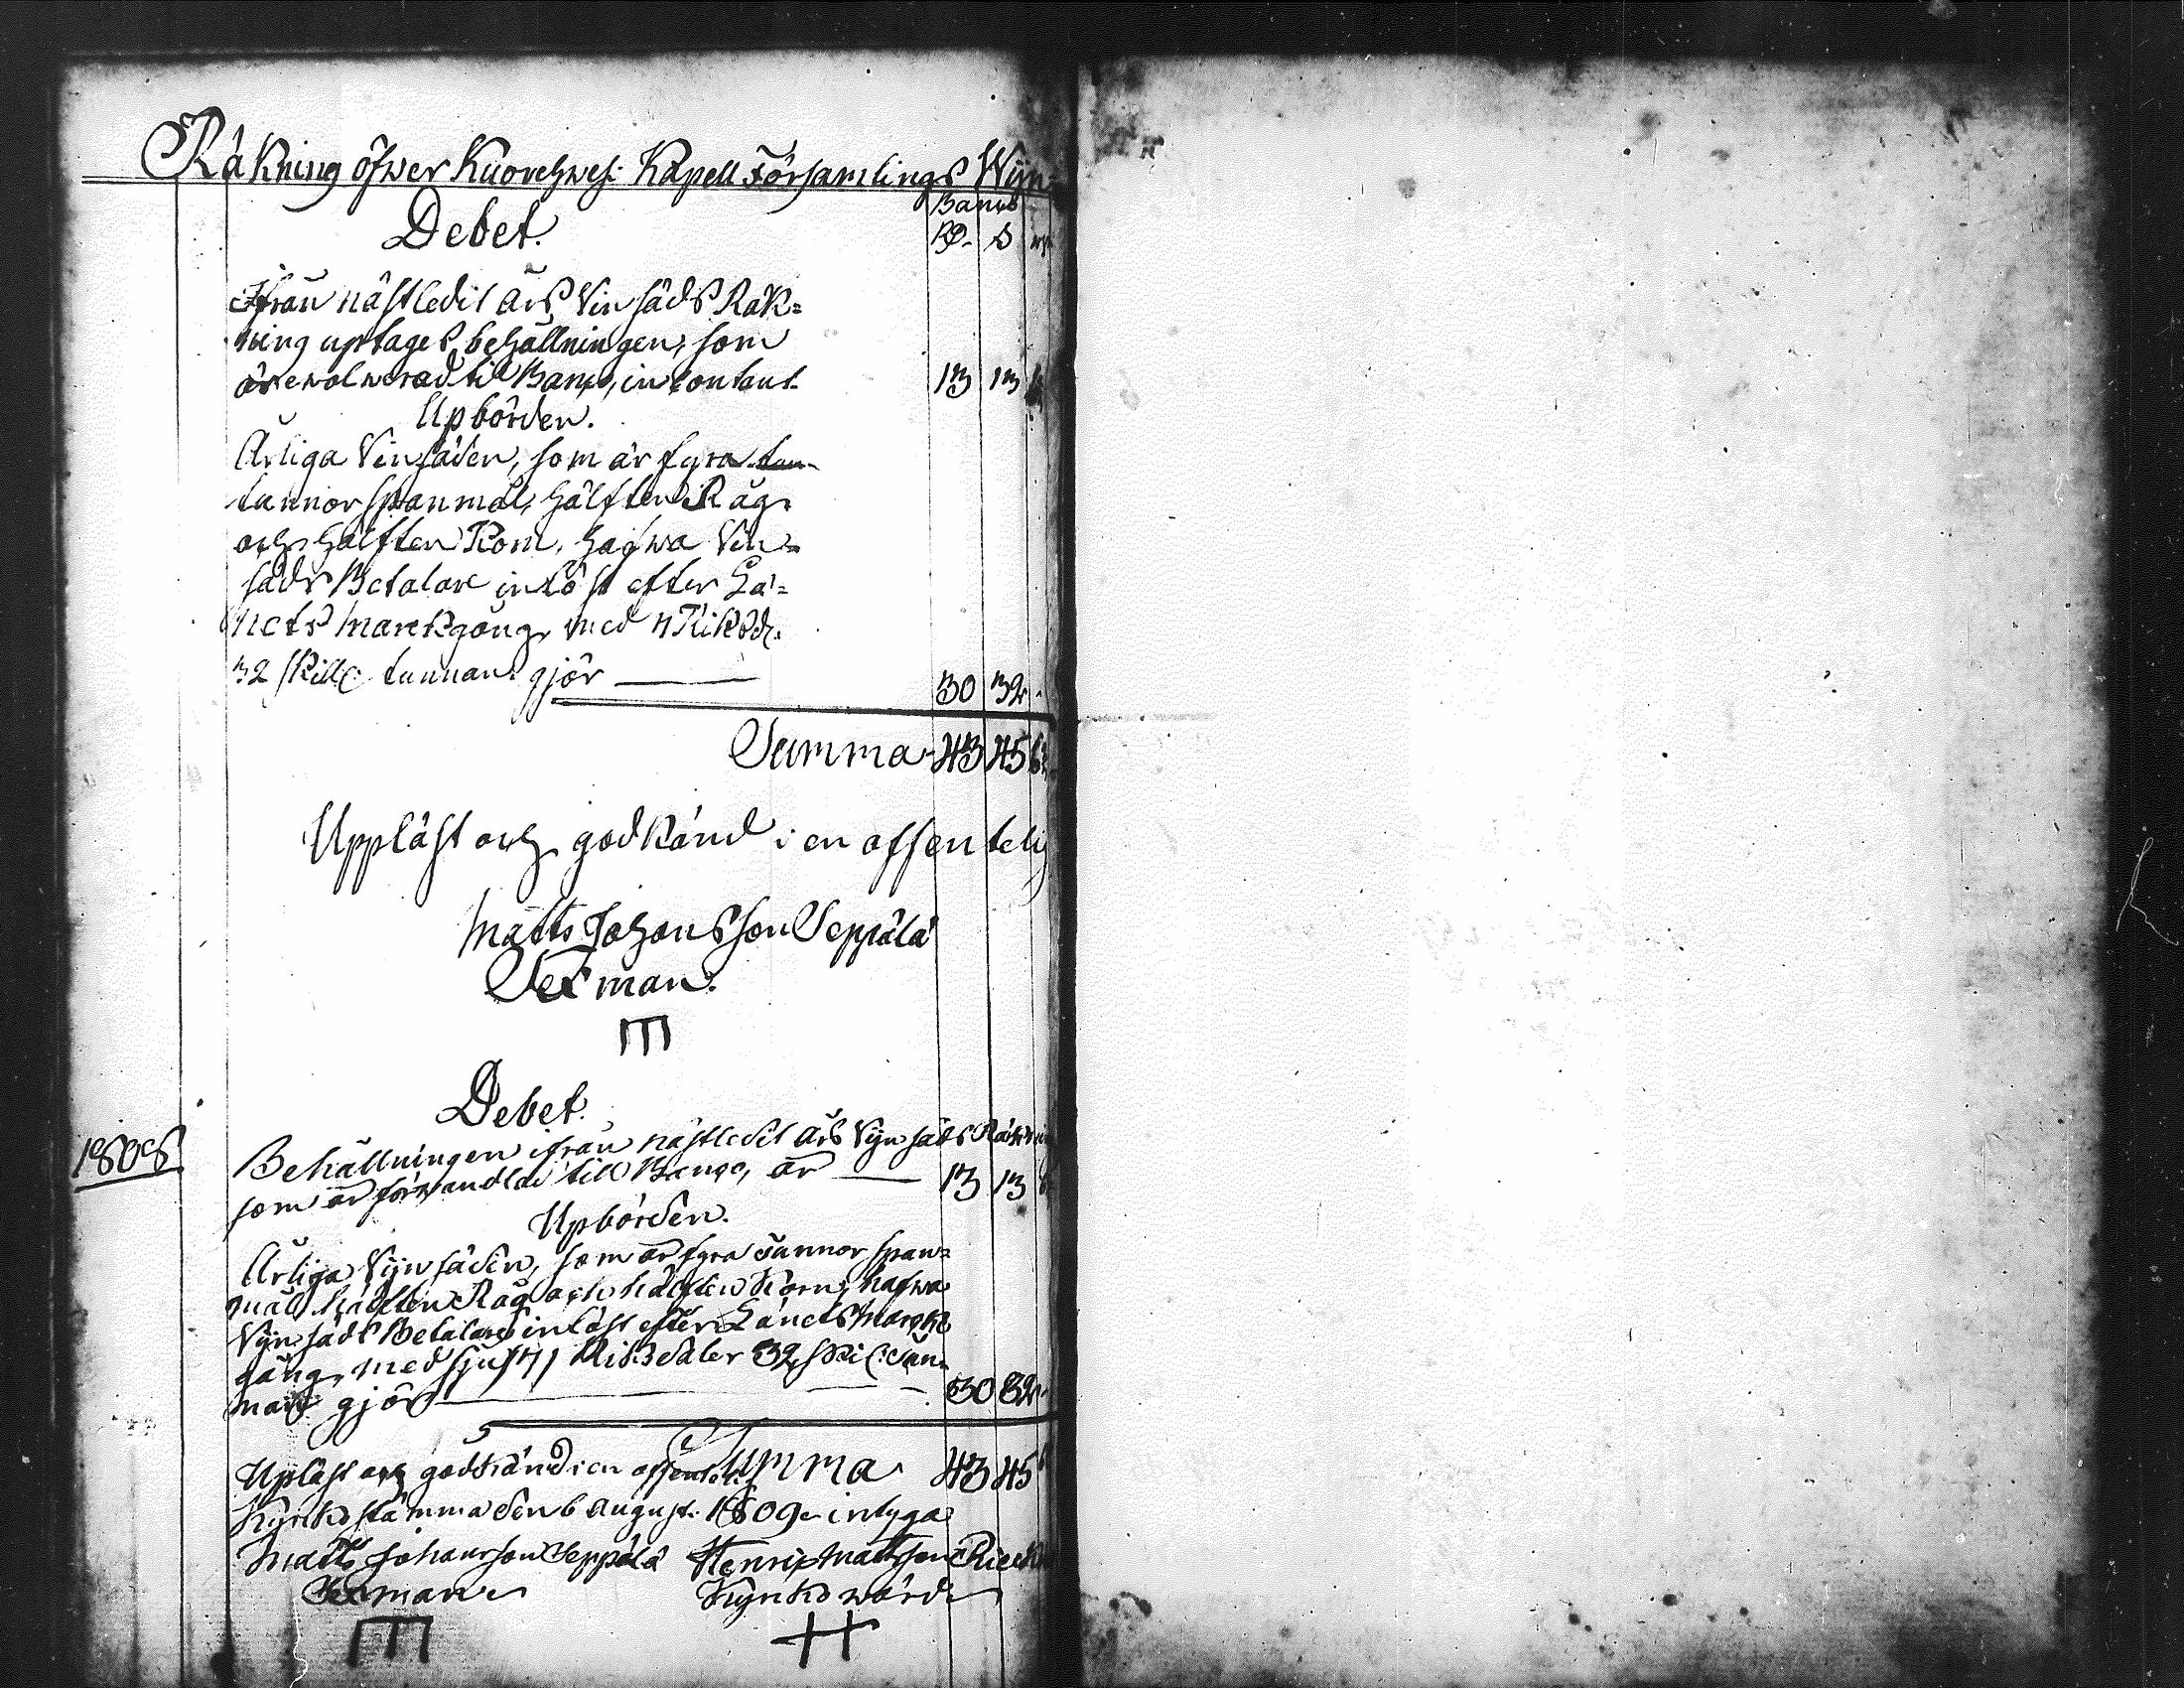 Räkning öfwer Kuorehwesi Kapell Församlings Wijn-
Banco
Debet. RD. S rs
Ifrån nästledit års Vin säds Räk=
ning uptages behållningen, som
är ewolwerad til Banco, in contant. 13 13
Upbörden.
Årliga Vinsäden, som är fyra
tunnor spanmål, hälften Råg
och hälften Korn, hafwa Vin=
säds Betalare inlöst efter Lä=
nets markgång, med 7 Riksd.
32 skill: tunnan gjör 30 32.
Summa 43 45
Uppläst och godkänd i en offentelig
Matts Johansson Seppälä
Sexman.
Debet.
1808 Behållningen ifrån nästledit års Vijn säds Räkning
som är förwandlad till Banco, är 13 13
Upbörden.
Årliga Vijnsäden, som är fyra Tunnor span=
mål hälften Råg och hälften Korn, hafwa
Vijnsäds Betalare inlöst efter Länets Markt
gång, med sju /7/ Riksdaler 32 skil: Tun=
nan gjör 30 32.
Summa 43 45
Upläst och godkänd i en offentelig
Kyrkostämma den 6 August. 1809. intyga
Matts Johansson Seppälä Henric Mattsson
Sexman Kyrkowärd